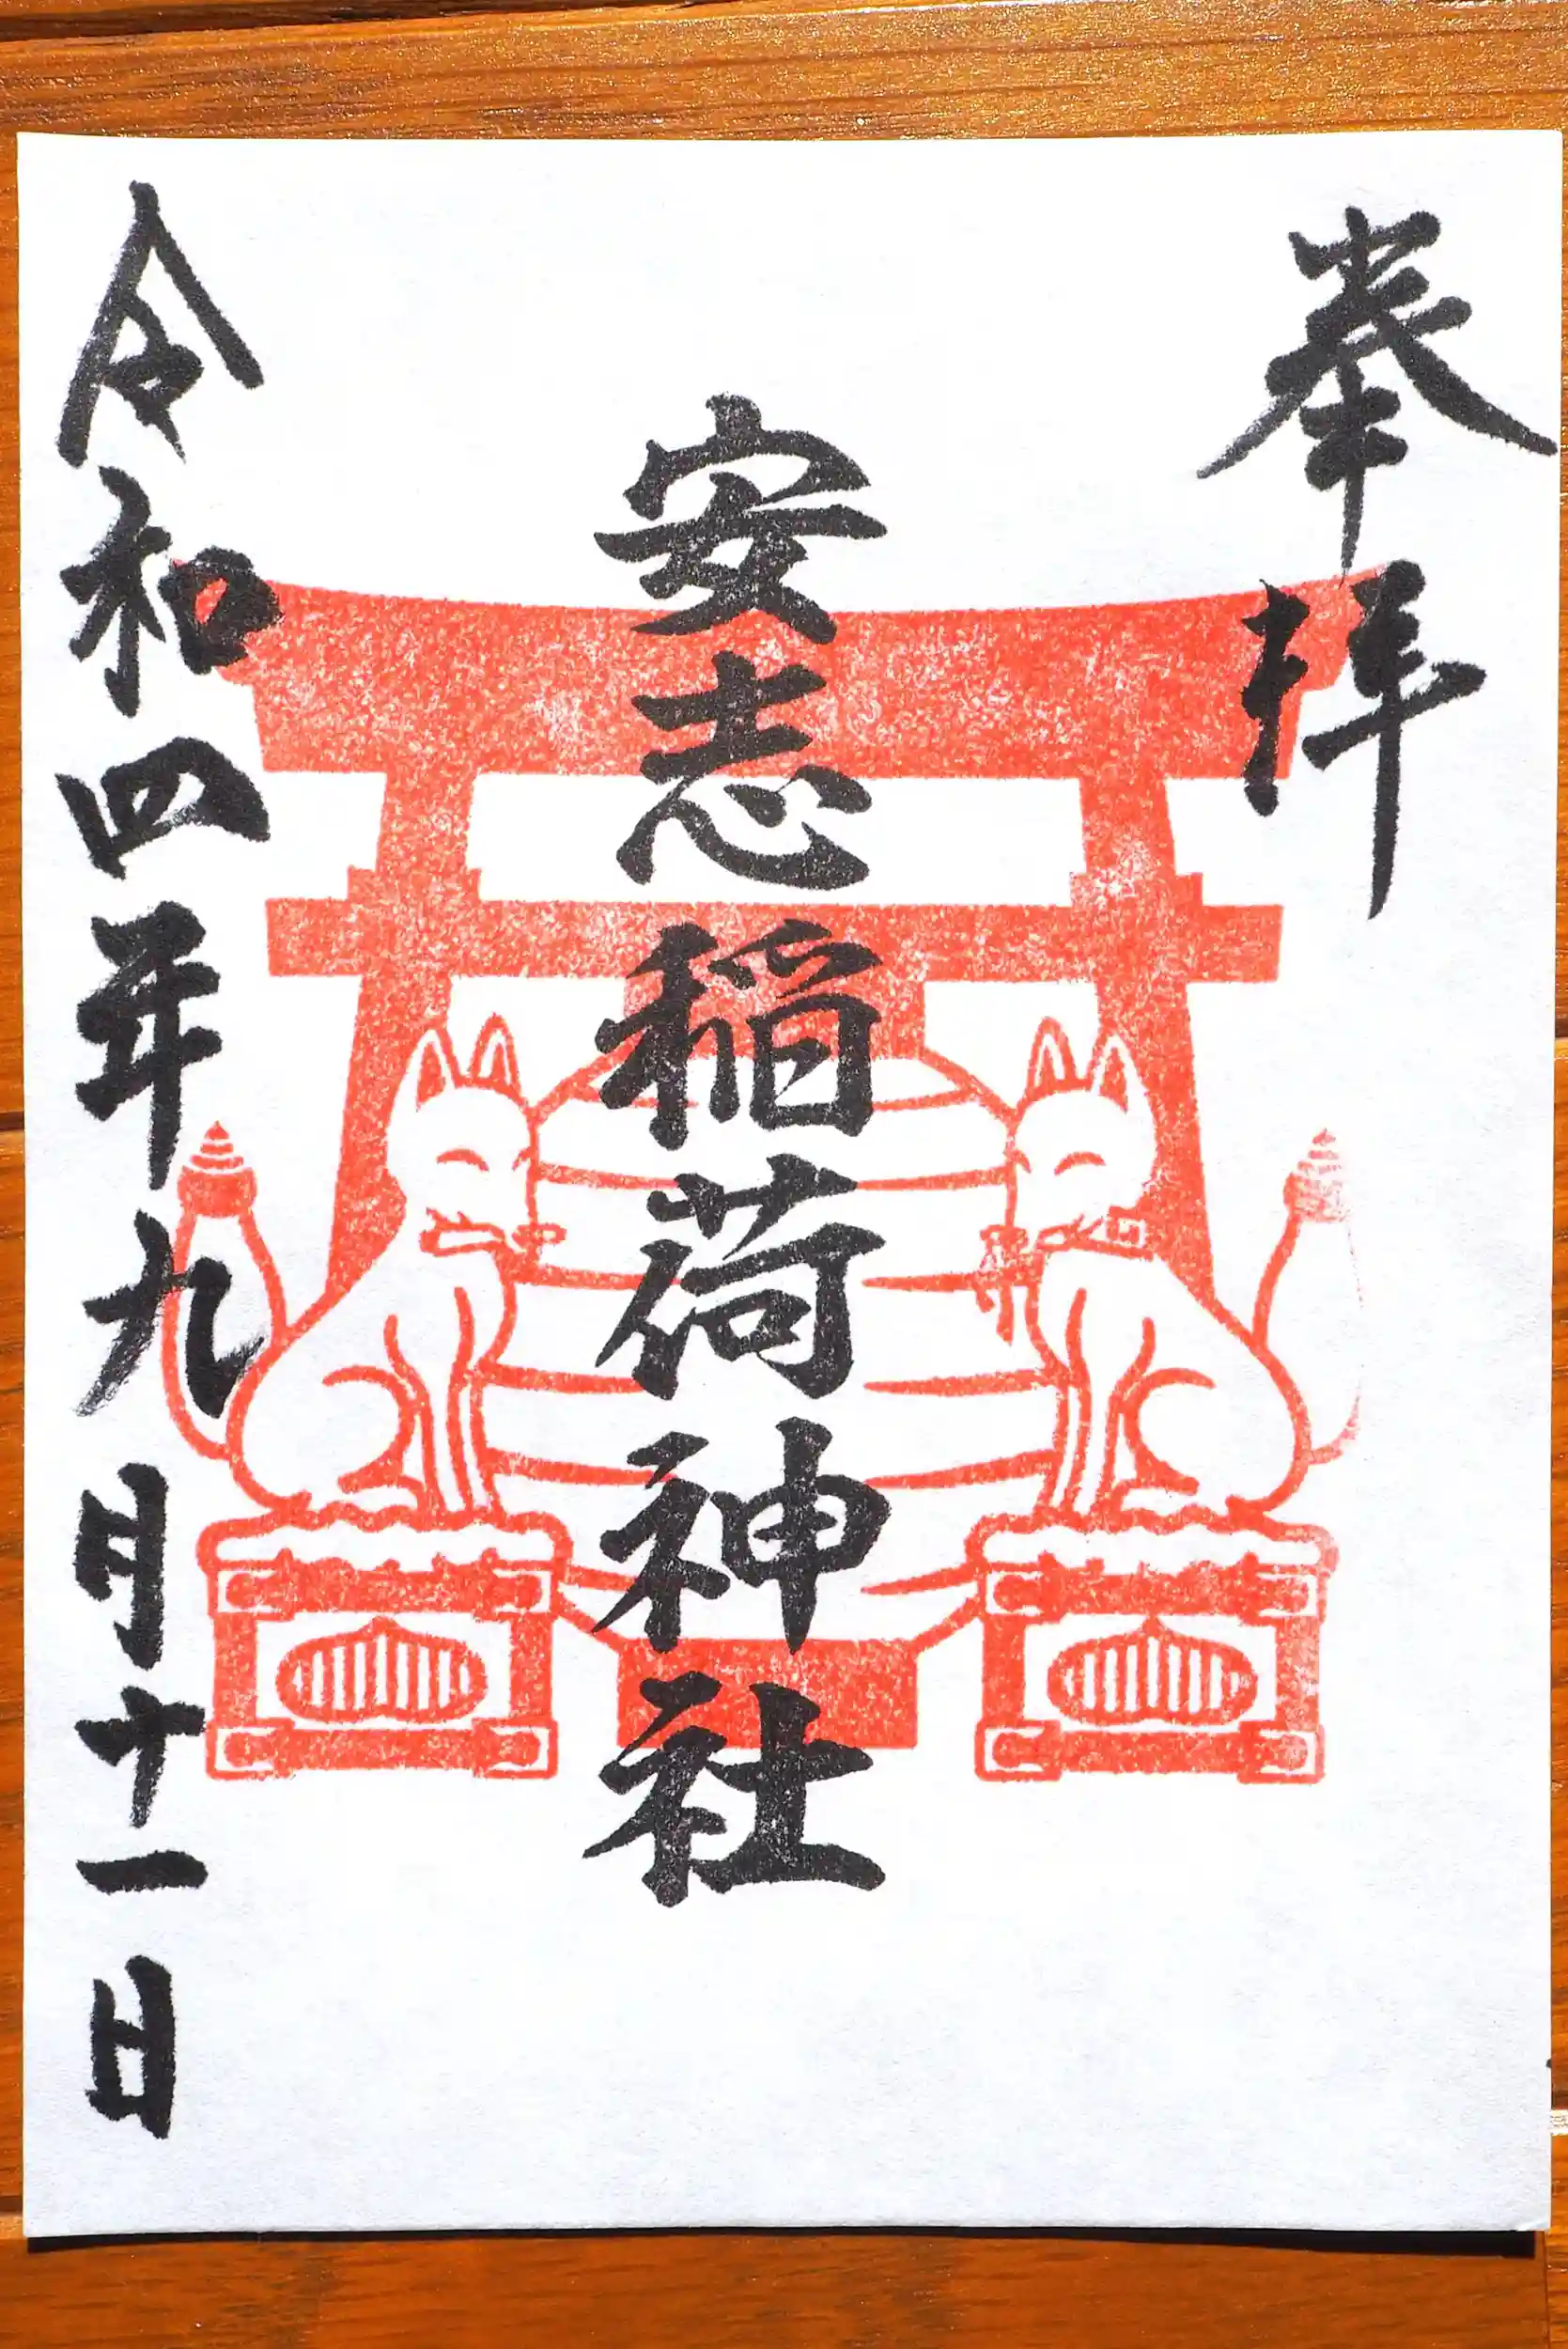 奉拝
安志稲荷神社
令和四年九月十一日